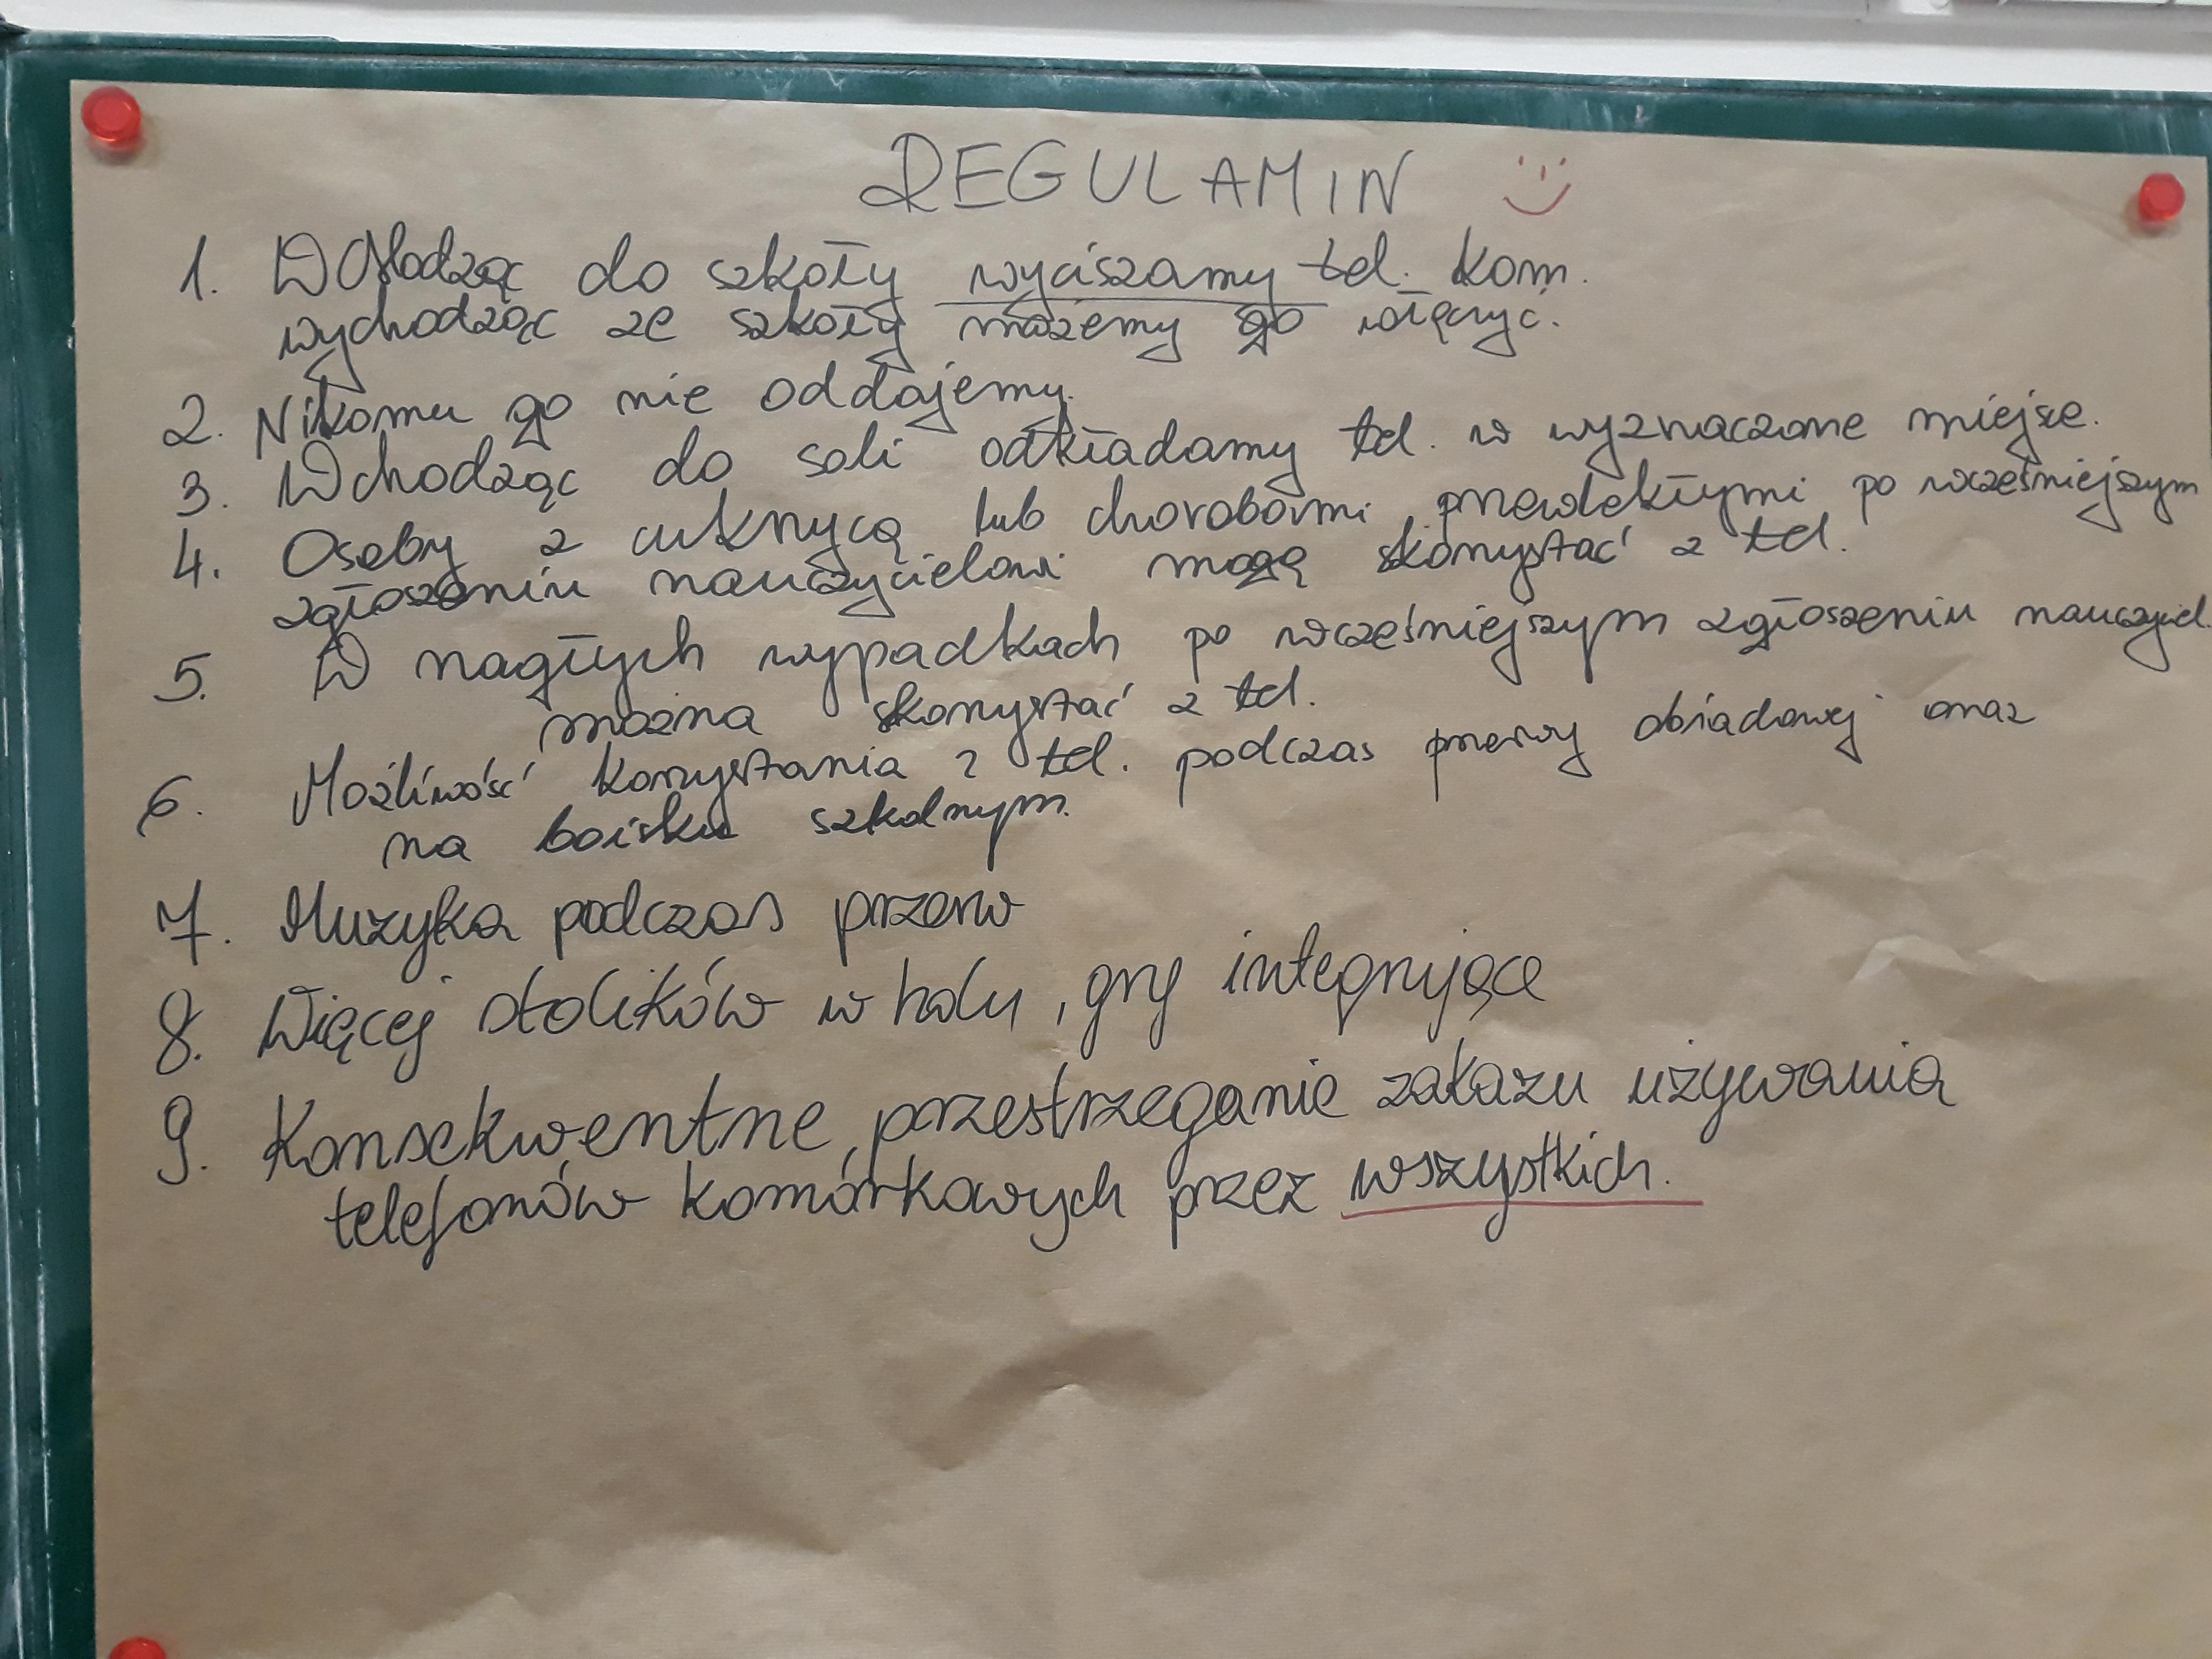 REGULAMIN
1. Wchodząc do szkoły wyciszamy tel. kom.
wychodząc ze szkoły możemy go włączyć.
2. Nikomu go nie oddajemy.
3. Wchodząc do sali odkładamy tel. w wyznaczone miejsce.
4. Osoby z cukrzycą lub chorobami przewlekłymi po wcześniejszym
zgłoszeniu nauczycielowi mogą skorzystać z tel.
5. W nagłych wypadkach po wcześniejszym zgłoszeniu nauczyciel.
można skorzystać z tel.
6. Możliwość korzystania z tel. podczas przerwy obiadowej oraz
na boisku szkolnym.
7. Muzyka podczas przerw
8. Więcej stolików w holu, gry integrujące
9. Konsekwentne przestrzeganie zakazu używania
telefonów komórkowych przez wszystkich.